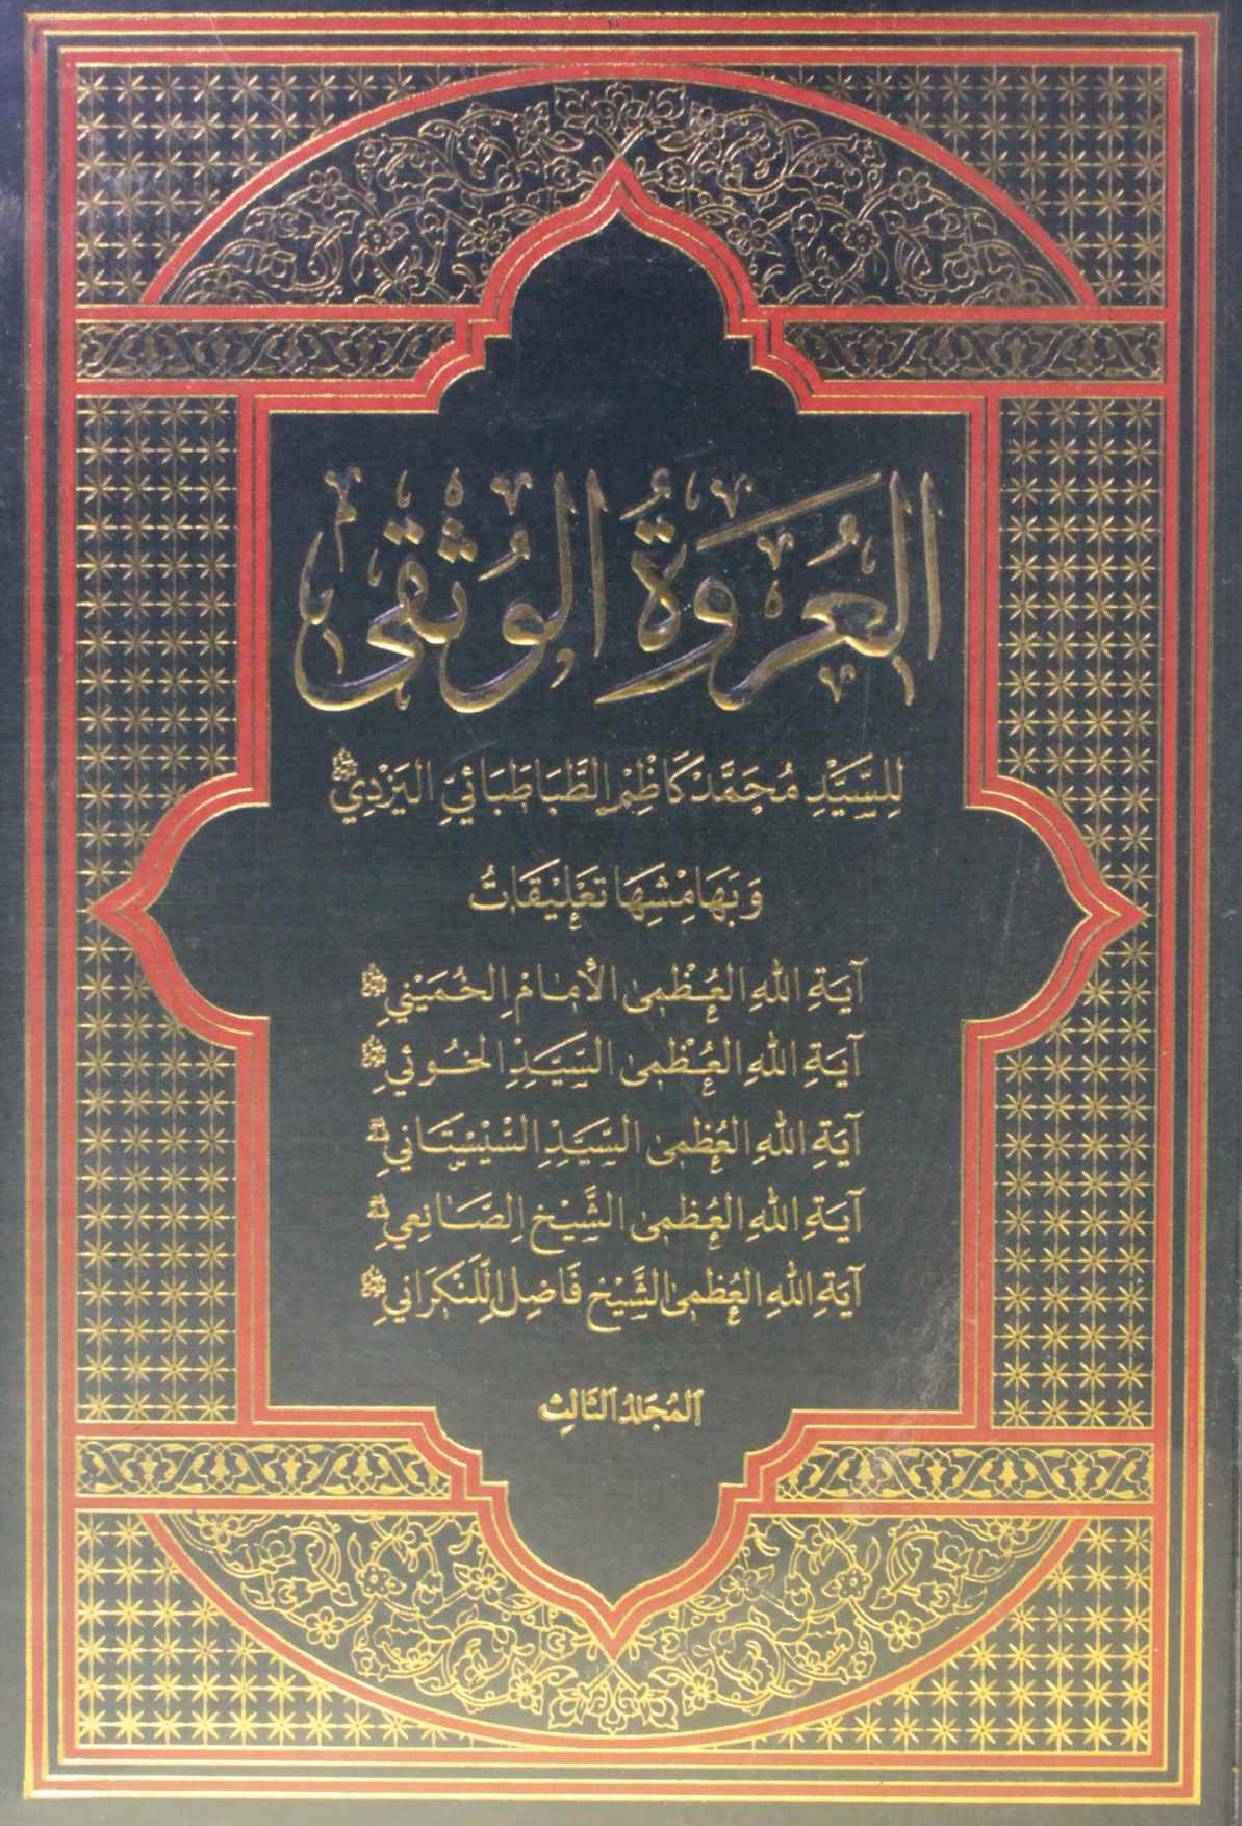 العُروَةُ الوُثقى
لِلسَّيِّدِ مُحَمَّد كَاظِمِ الطَّبَاطَبَائِيِّ اليَزْدِيِّ
وَبِهَامِشِهَا تَعْلِيقَاتُ
آيَةِ اللهِ العُظْمىٰ الأِمَامِ الخُمَيْنِي
آيَةِ اللهِ العُظْمىٰ السَّيِّدِ الخُوئي
آيَةِ اللهِ العُظمىٰ السَّيِّدِ السِّيْسْتَاني
آيَةِ اللهِ العُظمىٰ الشَّيْخِ الصَّانِعِي
آيَةِ اللهِ العُظمىٰ الشَّيْخِ فَاضِلِ اللَّنْكَرَاني
المُجَلدُ الثَالِث